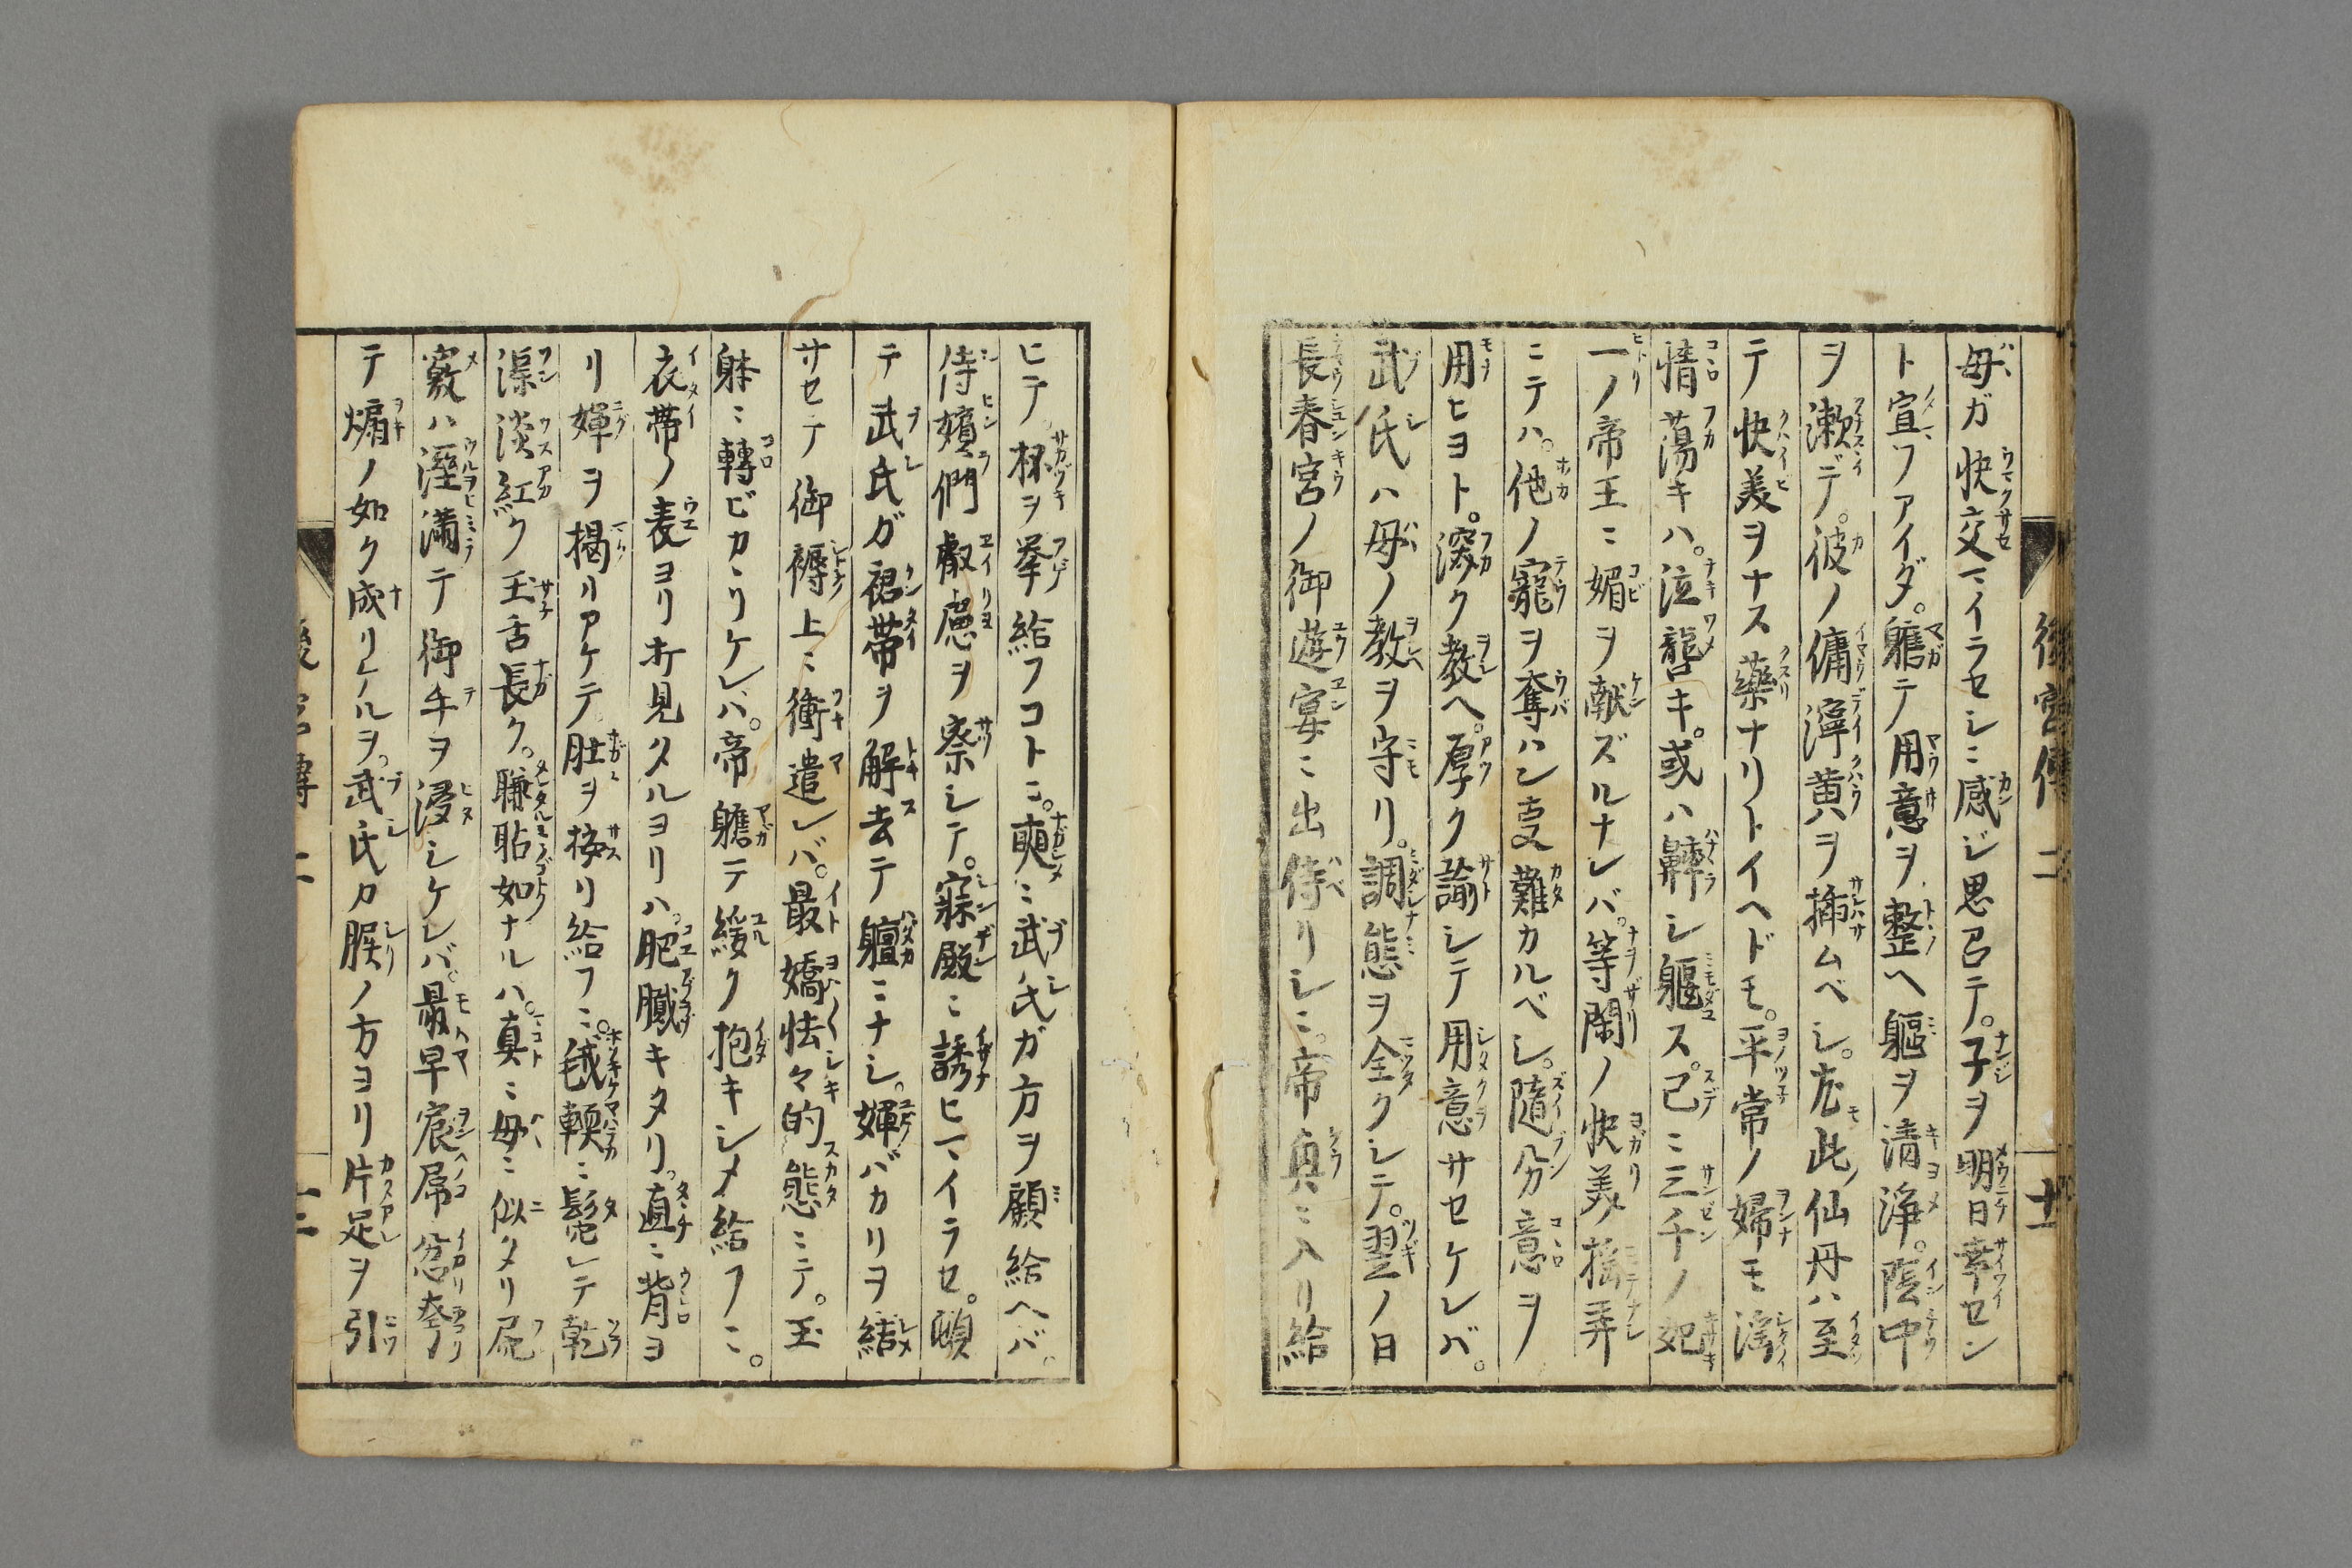 後宮傳 二 十一
母ガ快交マイラセシニ感ジ思召テ。子ヲ明日幸セン
ト宣フアイダ。軈テ用意ヲ整ヘ軀ヲ清浄。陰中
ヲ漱デ。彼ノ傭濘黄ヲ挿ムベシ。尤此ノ仙丹ハ至
テ快美ヲナス藥ナリトイヘドモ。平常ノ婦モ淫
情蕩キハ。泣キ。或ハシ軀ス。已ニ三千ノ妃
一ノ帝王ニ媚ヲ献ズルナレバ。等閑ノ快美揺弄
ニテハ。他ノ寵ヲ奪ハン事難カルベシ。隨分意ヲ
用ヒヨト。深ク教ヘ。厚ク諭シテ用意サセケレバ。
武氏ハ母ノ教ヲ守リ。調態ヲ全クシテ。翌ノ日
長春宮ノ御遊宴ニ出侍リシニ。帝真ニ入リ給
ヒテ杯ヲ挙給フコトニ。武氏ガ方ヲ顧給ヘバ。
侍嬪們叡慮ヲ察シテ。寐殿ニ誘ヒマイラセ。頓
テ武氏ガ裙帯ヲ解去テ軆ニナシ。褌バカリヲ結
サセテ御褥上ニ衝遣レバ。最嬌怯々的態ニテ。玉
躰ニ轉ビカヽリケレバ。帝軈テ緩ク抱キシメ給フニ。
衣帯ノ表ヨリオ見タルヨリハ。肥膩キタリ。直ニ背ヨ
リ褌ヲ掲リアケテ肚ヲ按リ給フニ。毧輭ニ髭レテ乾
深淡紅ク玉舌長ク。聯聒如ナルハ。真ニ母ニ似タリ屍
竅ハ溼満テ御手ヲ浸シケレバ。最早宸屌忿䓫
テ煽ノ如ク成リケルヲ。武氏カ腂ノ方ヨリ片足ヲ引
後宮傳 二 十二